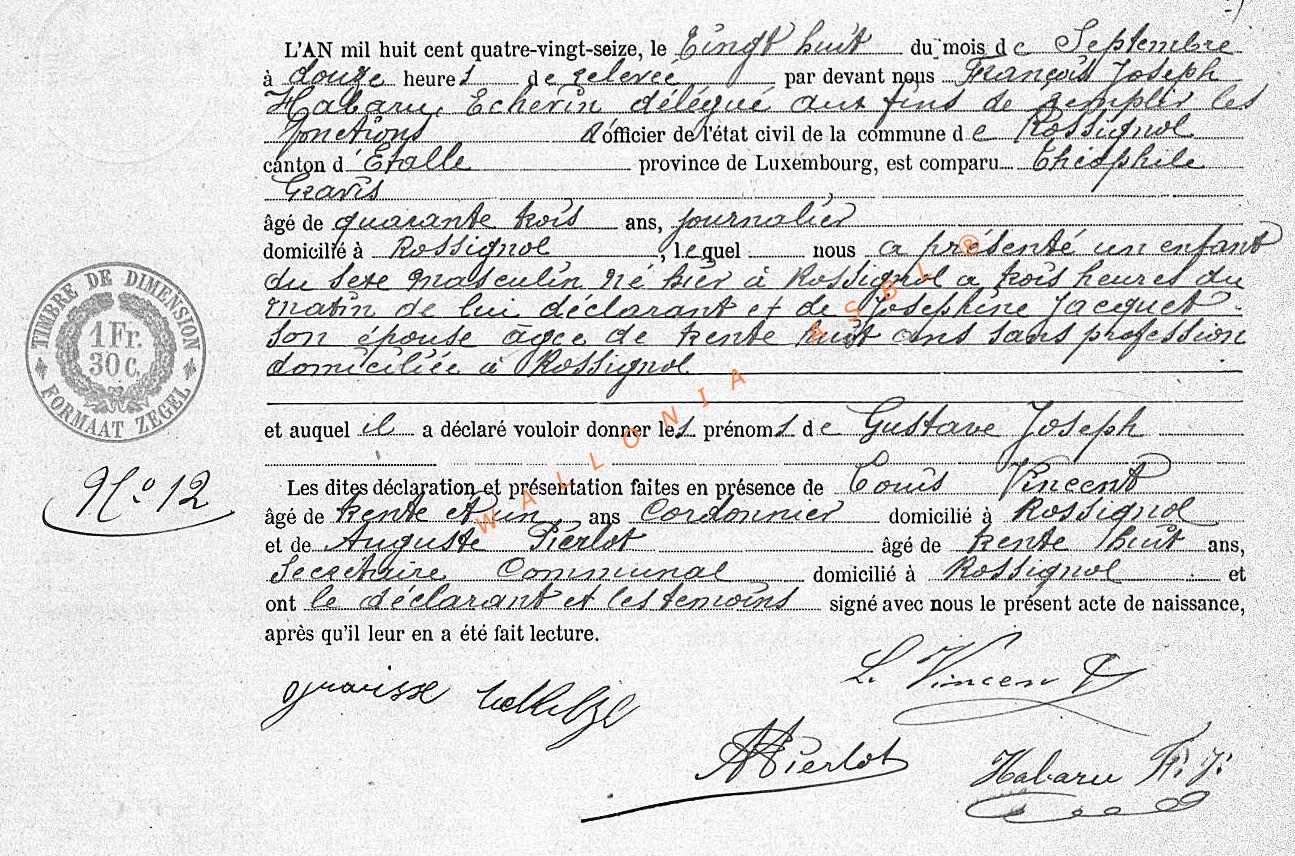 L'AN mil huit cent quatre-vingt-seize, le Vingt huit du mois de Septembre
à douze heures de relevée par devant nous François Joseph
Habaru, Echevin délégué aux fins de remplir les
fonctions d'officier de l'état civil de la commune de Rossignol
canton d'Etalle province de Luxembourg, est comparu Théophile
Gravis
âgé de quarante trois ans, journalier
domicilié à Rossignol, lequel nous a présenté un enfant
du sexe masculin né hier à Rossignol a trois heures du
matin de lui déclarant et de Joséphine Jacquet
son épouse âgée de trente huit ans sans profession
domiciliée à Rossignol
et auquel il a déclaré vouloir donner les prénoms de Gustave Joseph
Les dites déclaration et présentation faites en présence de Louis Vincent
âgé de trente et un ans Cordonnier domicilié à Rossignol
et de Auguste Pierlot âgé de trente huit ans,
Secrétaire Communal domicilié à Rossignol et
ont le déclarant et les temoins signé avec nous le présent acte de naissance,
après qu'il leur en a été fait lecture.
L. Vincent
A Pierlot Habaru Fr. J.
TIMBRE DE DIMENSION
1 Fr.
30 c.
FORMAAT ZEGEL
N° 12
WALLONIA ASBL ®